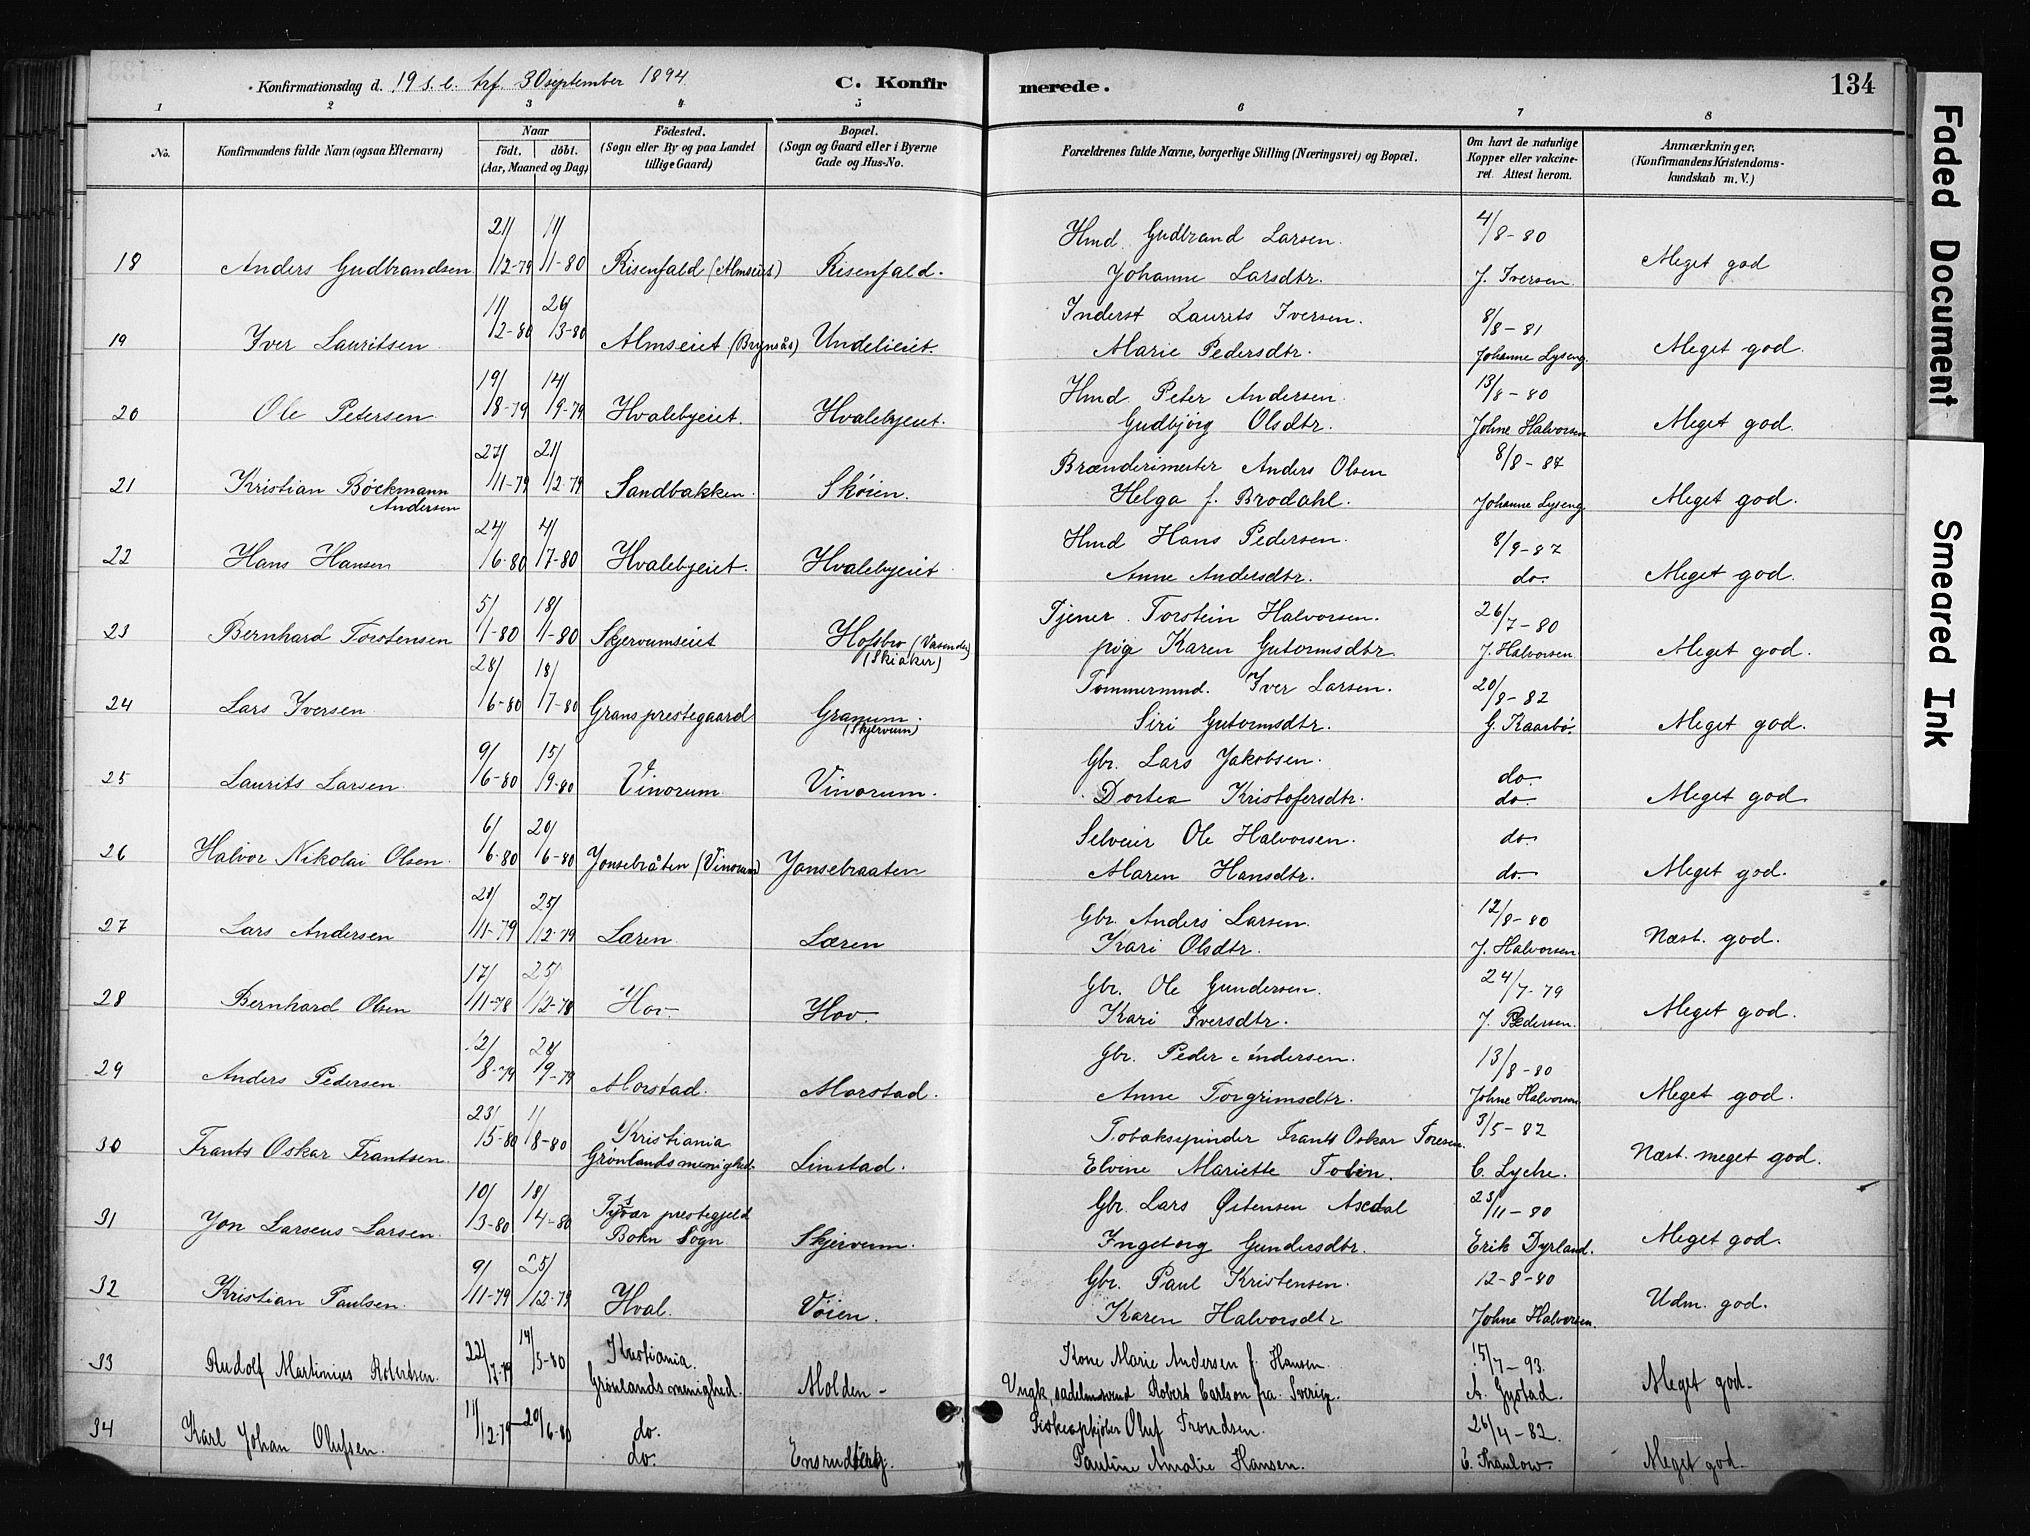 Konfirmationsdag d. 19 s. e. trf. 30 september 1894. C. Konfirmerede. 134
1 2 3 4 5 6 7 8
No. Konfirmandens fulde Navn (ogsaa Efternavn) Naar født. døbt. (Aar, Maaned og Dag) Fødested. (Sogn eller By og paa Landet tillige Gaard) Bopæl. (Sogn og Gaard eller i Byerne Gade og Hus-No. Forældrenes fulde Navne, borgerlige Stilling (Næringsvei) og Bopæl. Om havt de naturlige Kopper eller vakcineret. Attest herom. Anmærkninger. (Konfirmandens Kristendomskundskab m. V.)
18 Anders Gudbrandsen 21/12-79 11/1-80 Risenfald (Almseiet) Risenfald. Hmd. Gudbrand Larsen. Johanne Larsdtr. 4/8-80 J. Iversen. Meget god
19 Iver Lauritsen 11/2-80 26/3-80 Almseiet (Brynsås) Undelieiet. Inderst Laurits Iversen. Marie Pedersdtr. 8/8-81 Johanne Lyseng. Meget god.
20 Ole Petersen 19/8-79 14/9-79 Hvalebyeiet. Hvalebyeiet. Hmd. Peter Andersen. Gudbjørg Olsdtr. 13/8-80 Johne Halvorsen Meget god.
21 Kristian Bøckmann Andersen 27/11-79 21/12-79 Sandbakken. Skøien. Brænderimester Anders Olsen Helga f. Brodahl. 8/8-87 Johanne Lyseng. Meget god.
22 Hans Hansen 24/6-80 4/7-80 Hvalebyeiet. Hvalebyeiet Hmd Hans Pedersen. Anne Andersdtr. 8/9-87 do. Meget god.
23 Bernhard Torstensen 5/1-80 18/1-80 Skjervumseiet Hofsbro (Vasenden) (Skiaker) Tjener. Torstein Halvorsen. pige Karen Gutormsdtr 26/7-80 J. Halvorsen. Meget god.
24 Lars Iversen 28/6-80 18/7-80 Grans prestegaard Granum. (Skjervum) Tømmermnd. Iver Larsen. Siri Gutormsdtr. 20/8-82 G. Kaarbø. Meget god.
25 Laurits Larsen. 9/6-80 15/9-80 Vinorum Vinorum. Gbr. Lars Jakobsen. Dortea Kristofersdtr. do. do Meget god
26 Halvor Nikolai Olsen. 6/6-80 20/6-80 Jonsebråten (Vinorum) Jonsebraaten Selveier Ole Halvorsen. Maren Hansdtr. do. do. Meget god.
27 Lars Andersen 21/11-79 25/12-79 Læren Læren Gbr. Anders Larsen. Kari Olsdtr. 12/8-80 J. Halvorsen. Næst. god.
28 Bernhard Olsen 17/11-78 25/12-78 Hov. Hov. Gbr. Ole Gundersen. Kari Iversdtr. 24/7-79 J. Pedersen. Meget god.
29 Anders Pedersen. 2/8-79 28/9-79 Morstad. Morstad. Gbr. Peder Andersen. Anne Torgrimsdtr. 13/8-80 Johne Halvorsen Meget god.
30 Frants Oskar Frantsen. 23/5-80 1/8-80 Kristiania Grønlands menighed. Linstad. Tobakspinder Frants Oskar Toresen. Elvine Mariette Tobin. 3/5-82 C. Lyche. Næst. meget god.
31 Jon Larseus Larsen. 10/3-80 18/4-80 Tysvær prestegjeld Bokn Sogn Skjervum. Gbr. Lars Østensen Axdal Ingeborg Gundersdtr. 23/11-80 Erik Dyrland. Meget god.
32 Kristian Paulsen. 9/11-79 25/12-79 Hval. Vøien. Gbr. Paul Kristensen. Karen Halvorsdtr 12-8-80 Johne Halvorsen. Udm. god.
33 Rudolf Martinius Robertsen. 22/7-79 14/5-80 Kristiania. Grønlands menighed. Molden - Kone Marie Andersen f. Hansen. Ungk. sadelm.svend Robert Carlson fra Sverig. 15/7-93. A. Gystad. Meget god.
34 Karl Johan Olufsen. 11/12-79 20/6-80 do. do. Ensrudberg. Fiskeopkjøber Oluf Trondsen. Pauline Amalie Hansen. 26/4-82. E. Thaulow. Meget god.
Faded Document
Smeared Ink